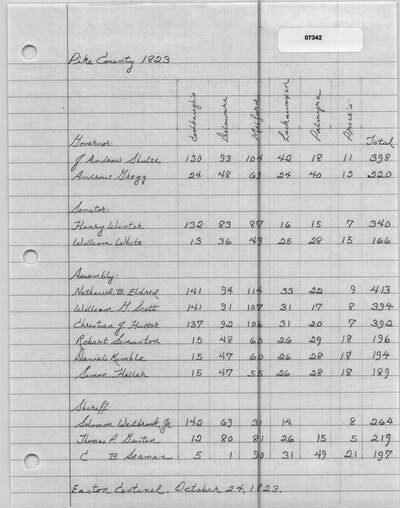 07342
Pike County 1823
Coolbaugh's Delaware Milford Lackawaxen Palmyra Price's
Governor: Total
J Andrew Shulze 130 93 104 42 18 11 398
Andrew Gregg 24 48 69 24 40 15 220
Senator:
Henry Winter 132 83 87 16 15 7 340
William White 13 36 49 25 28 15 166
Assembly:
Nathaniel B. Eldred 141 94 114 33 22 9 413
William G. Scott 141 91 107 31 17 8 394
Christian J Hutter 137 92 106 31 20 7 392
Robert Simanton 15 48 60 26 29 18 196
Daniel Kimble 15 47 60 26 28 18 194
Simon Heller 15 47 55 26 28 18 189
Sheriff
Solomon Westbrook Jr 142 69 31 14 8 264
Thomas P. Gustin 12 80 81 26 15 5 219
C B. Seaman 5 1 90 31 49 21 197
Easton Centinel. October 24, 1823.